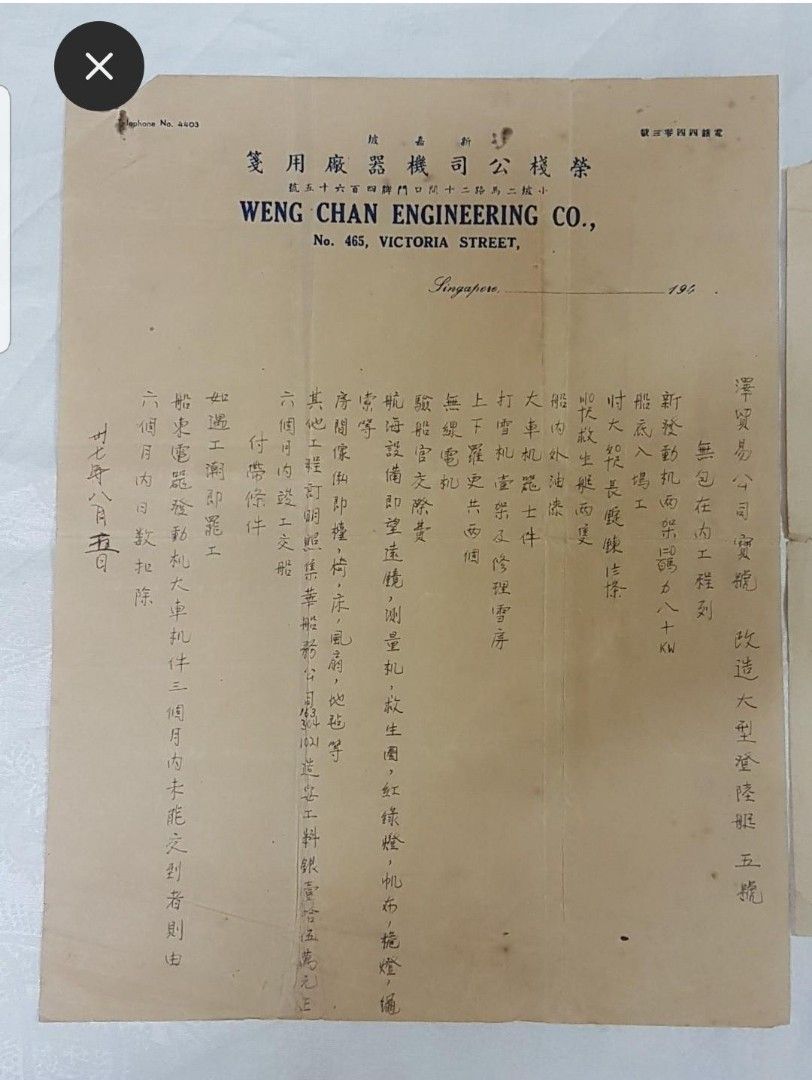 Telephone No. 4403
電話四四零三號
新嘉坡
榮棧公司機器廠用箋
小坡二馬路二十間口門牌四百六十五號
WENG CHAN ENGINEERING CO.,
No. 465, VICTORIA STREET,
Singapore, 194 .
澤貿易公司寶號 改造大型登陸艇五號
無包在內工程列
新發動机兩架 馬力八十KW
船底入塢工
救生艇兩隻
船內外油漆
大車机器士件
打雪机壹架及修理雪房
上下羅更共兩個
無線電机
驗船官交際費
航海設備即望遠鏡,測量机,救生圈,紅綠燈,帆布,桅燈,繩
索等
房間傢俬即檯,椅,床,風扇,地毡等
其他工程訂明照集華船務公司 1021造妥工料銀壹拾伍萬元正
六個月內竣工交船
付帶條件
如遇工潮即罷工
船東電器發動机大車机件三個月內未能交到者則由
六個月內日數扣除
卅七年八月 日